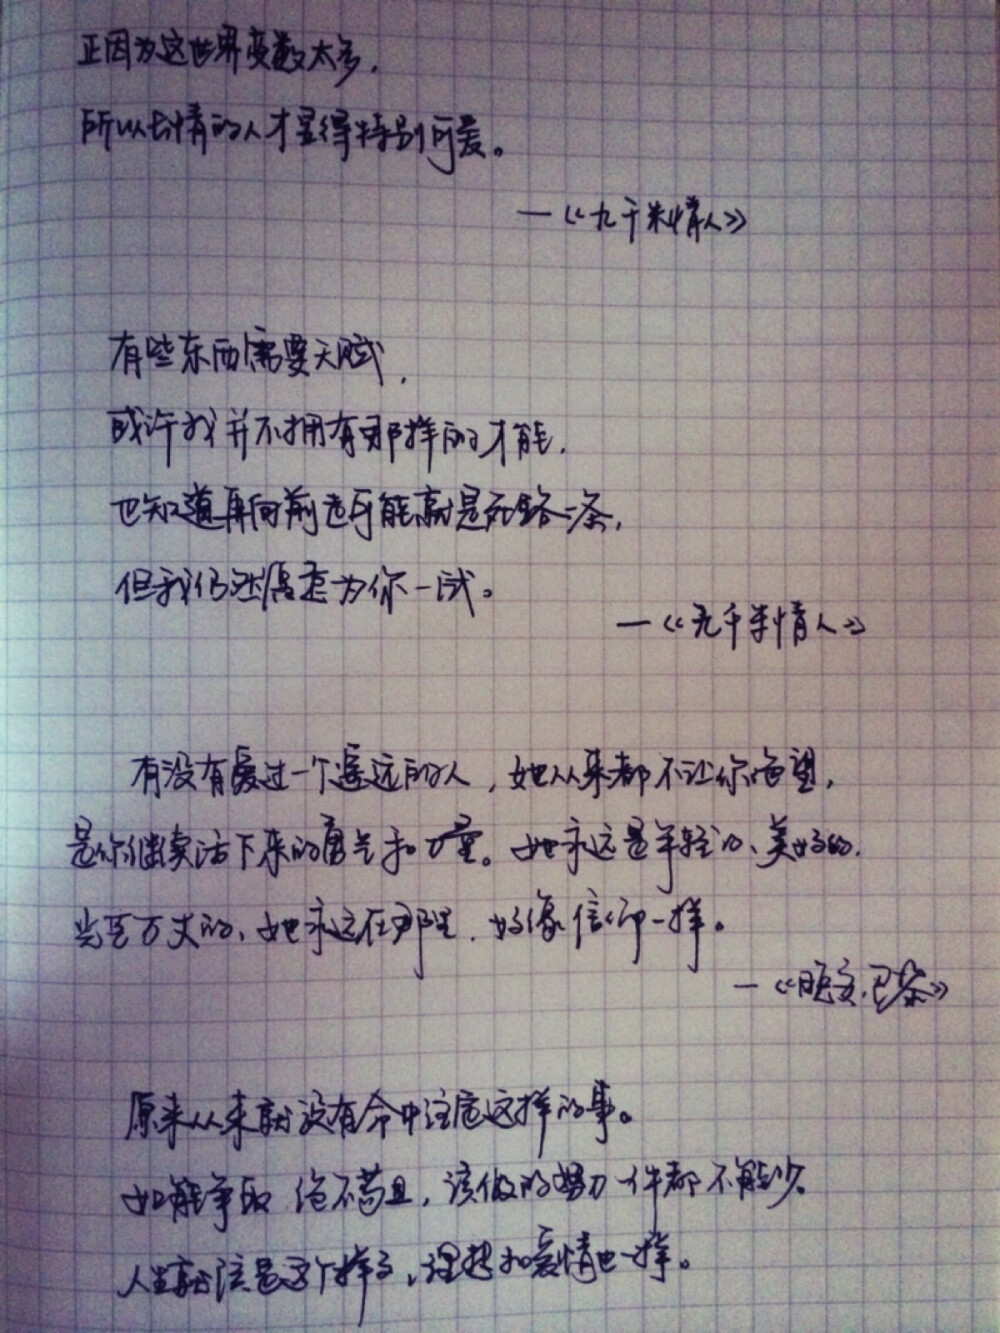 正因为这世界变数太多，
所以长情的人才显得特别可爱。
—《九千米情人》
有些东西需要天赋，
或许我并不拥有那样的才能，
也知道再向前走可能就是死路一条，
但我仍然愿意为你一试。
—《九千米情人》
有没有爱过一个遥远的人，她从来都不让你绝望，
是你继续活下来的勇气和力量。她永远是年轻的、美好的、
光芒万丈的、她永远在那里，好像信仰一样。
—《晚安，巴黎》
原来从来就没有命中注定这样的事。
如能争取 绝不苟且，该做的努力一件都不能少。
人生就该是这个样子，理想和爱情也一样。